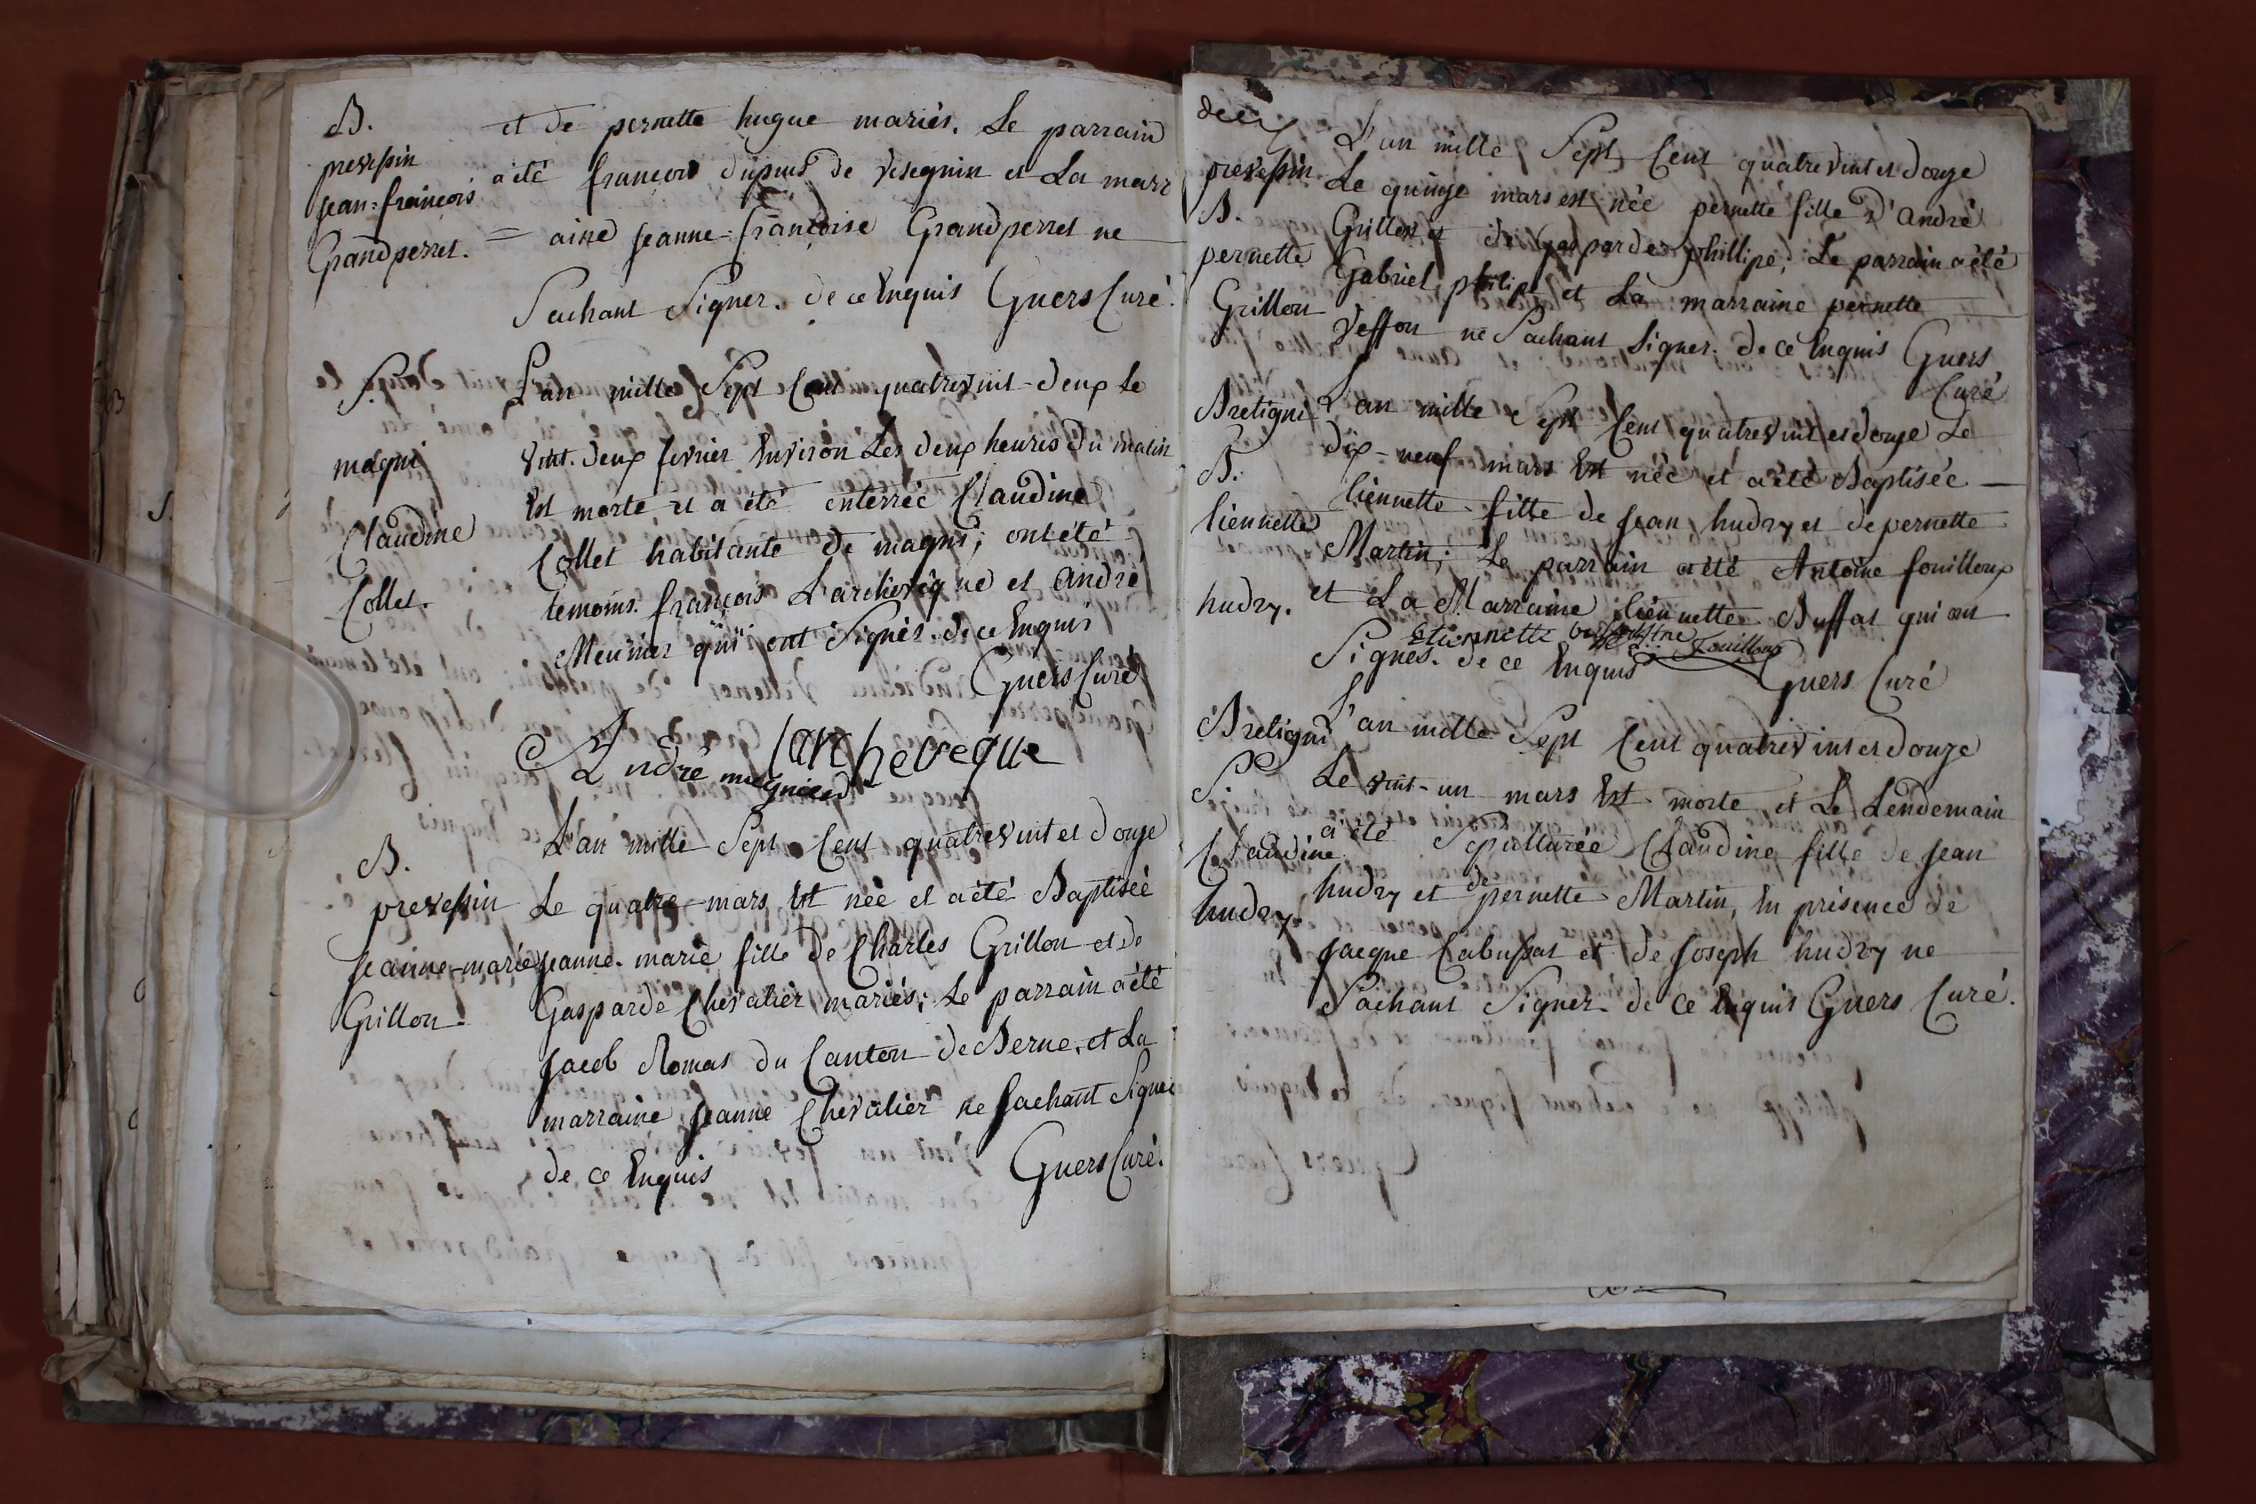 B.
prevessin
jean=francois
Grandperret.
et de pernette hugue mariés. Le parrain
a été francois dupuis de vésegnin et La marr
= aine jeanne=francoise Grandperret ne
Sachant Signer. de ce Enquis Guers Curé.
S.
magni
Claudine
Collet.
L'an mille Sept Cent quatrevint-deux Le
vint-deux fevrier Environ Les deux heures du matin
Est morte et a été enterrée Claudine
Collet habitante de magni; ont été
temoins francois L'archevêque et andré
Meunier qui ont Signés. de ce Enquis
Guers Curé
larcheveque
André
B.
prevessin
jeanne-marie
Grillon.
L'an mille Sept Cent quatrevint et douze
Le quatre mars Est née et a été Baptisée
jeanne-marie fille de Charles Grillon et de
Gasparde Chevalier mariés; Le parrain a été
jacob Romas du Canton de Berne, et La
marraine jeanne Chevalier ne Sachant Signer
de ce Enquis Guers Curé.
prevessin
B.
pernette
Grillon
L'an mille Sept Cent quatrevint et douze
Le quinze mars est née pernette fille d'andré
Grillon et de Gasparde phillipe, Le parrain a été
Gabriel philipe et La marraine pernette
veffon ne Sachant Signer. de ce Enquis Guers
Curé
Bretigni
B.
tiennette
hudry.
L'an mille Sept Cent quatrevint et douze Le
dix-neuf mars Est née et a été Baptisée
tiennette fille de jean hudry et de pernette
Martin; Le parrain a été Antoine fouilloux
et La Marraine tiennette Buffat qui ont
Etiennette fouilloux
Signés. de ce Enquis Guers Curé
Bretigni
S.
Claudine
hudry.
L'an mille Sept Cent quatrevint et douze
Le vint-un mars Est morte et Le Lendemain
a été Sepulturée Claudine fille de jean
hudry et de pernette Martin, En présence de
jacque Cabussat et de joseph hudry ne
Sachant Signer. de ce Enquis Guers Curé.